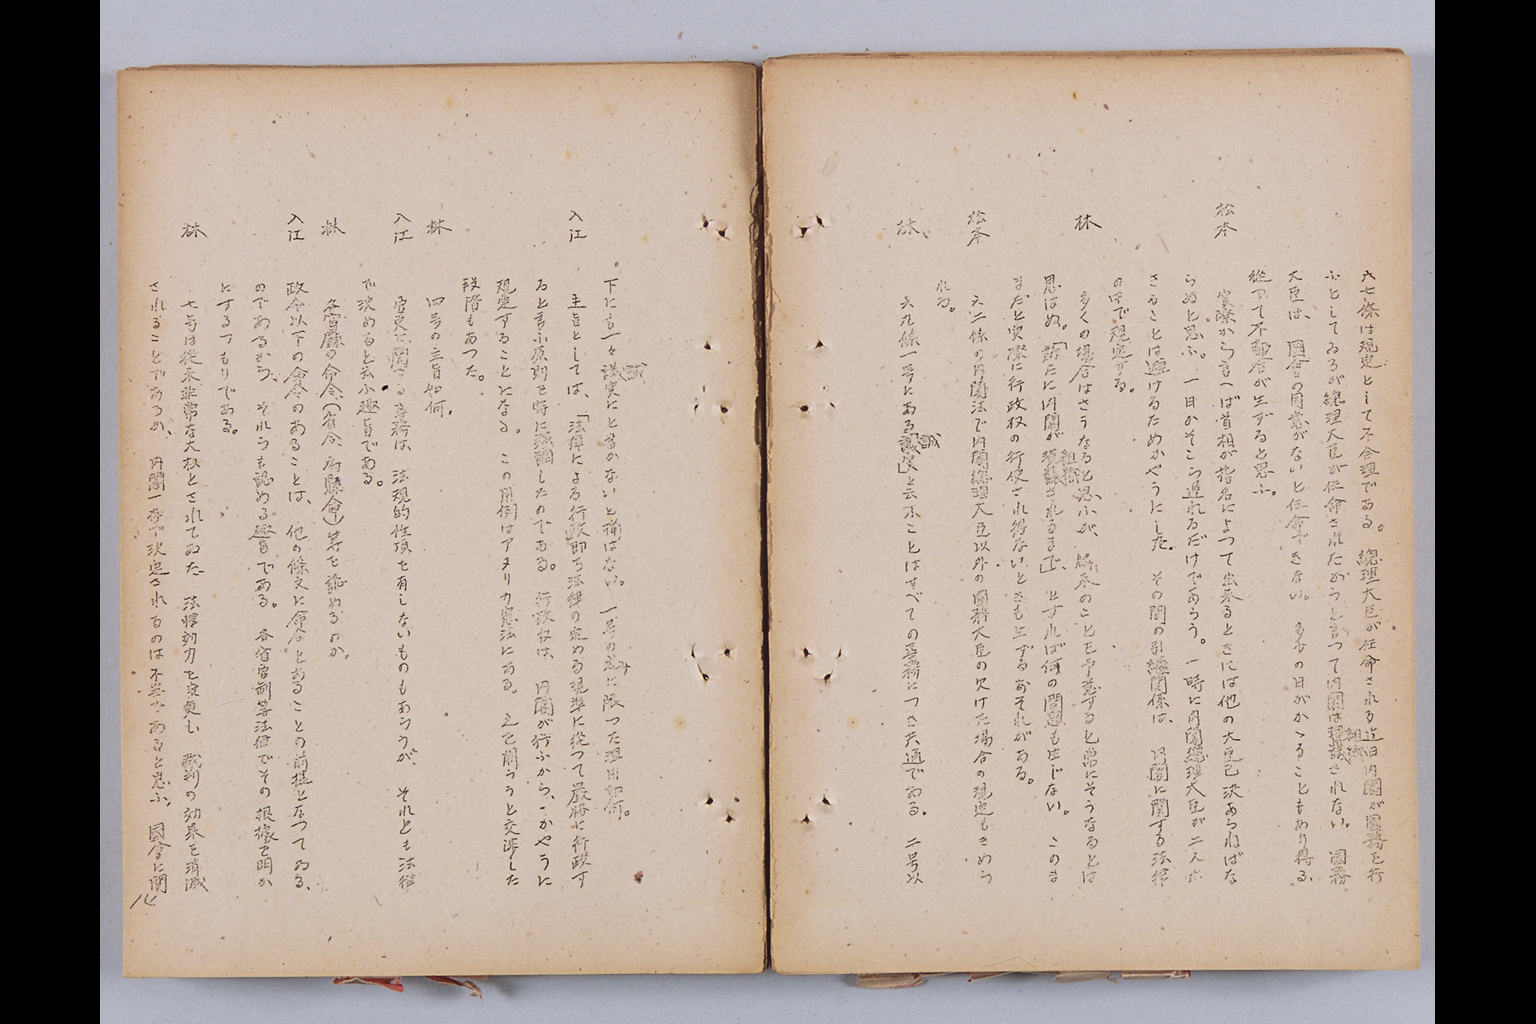 六七條は規定として不合理である。總理大臣が任命される迄旧内閣が國務を行
ふとしてゐるが總理大臣が任命されたからと言つて内閣は組織されない。國務
大臣は、國會の同意がないと任命できない。多くの日がかゝることもあり得る、
從つて不都合が生ずると思ふ。
松本 実際から言へば首相が指名によつて出来るときには他の大臣も決めねばな
らぬと思ふ。一日かそこら遅れるだけであらう。一時に内閣總理大臣が二人出
きることは避けるためかやうにした。その間の引継関係は、内閣に関する法律
の中で規定する。
林 多くの場合はさうなると思ふが、將来のことを予想すると常にそうなるとは
思はぬ。「新たに内閣が組織されるまで」とすれば何の問題も生じない。このま
まだと実際に行政权の行使され得ないときも生ずるおそれがある。
松本 六二條の内閣法で内閣總理大臣以外の國務大臣の欠けた場合の規定もきめら
れる。
林 六九條一号にある「誠実」と云ふことはすべての事務につき共通である。二号以
下にも一々誠実にと書かないと揃はない。一号のみに限つた理由如何。
入江 主旨としては、「法律による行政」即ち法律の定める規準に從つて嚴格に行政す
ると言ふ原則を特に強調したのである。行政权は、内閣が行ふから、かやうに
規定することになる。この用例はアメリカ憲法にある。之で削らうと交渉した
段階もあつた。
林 四号の主旨如何。
入江 官吏に関する事務は、法規的性質を有しないものもあらうが、それとも法律
で決めると云ふ趣旨である。
林 各官廳の命令、(省令、府縣令)等を認めるのか。
入江 政令以下の命令のあることは、他の條文に命令とあることの前提となつてゐる、
のであるから、それらも認める趣旨である。各省官制等法律でその根據を明か
にするつもりである。
林 七号は從来非常な大权とされてゐた 法律効力を変更し 裁判の効果を消滅
されることであるが、内閣一存で決定されるのは不当であると思ふ。國會に関